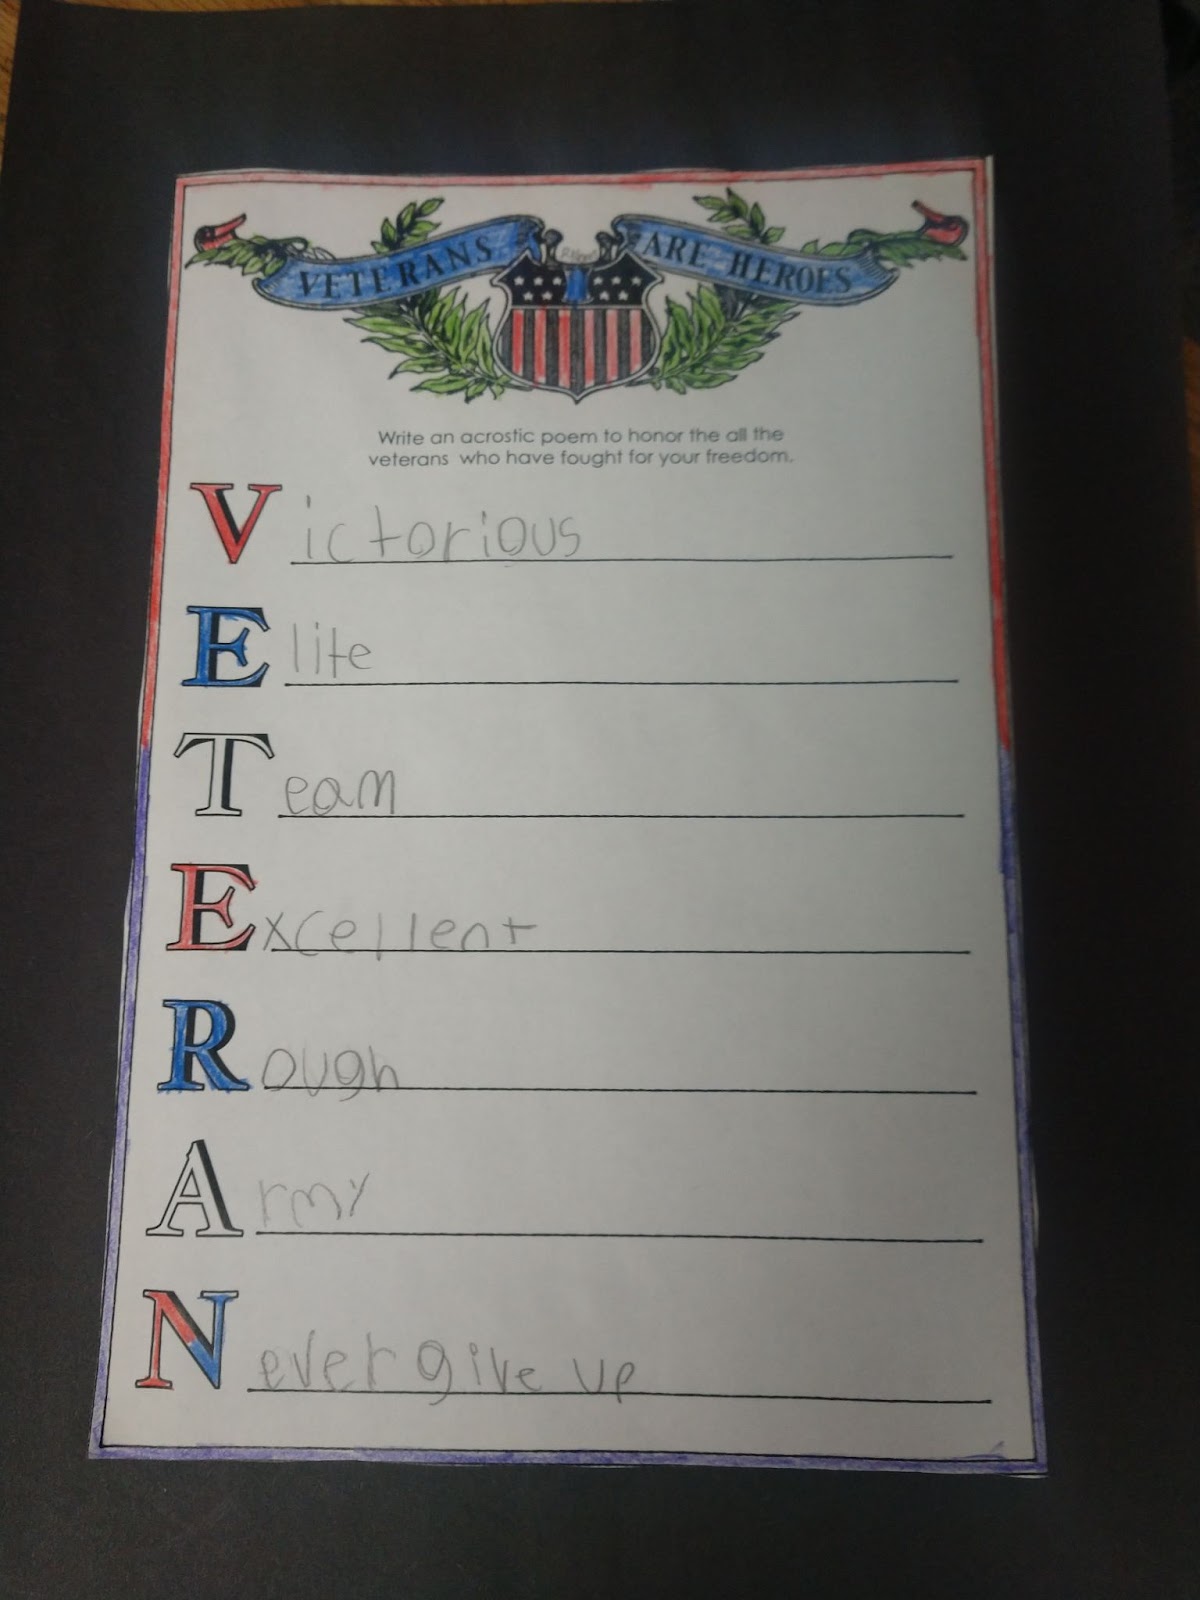 VETERANS ARE HEROES
Write an acrostic poem to honor the all the
veterans who have fought for your freedom.
Victorious
Elite
Team
Excellent
Rough
Army
Never give up